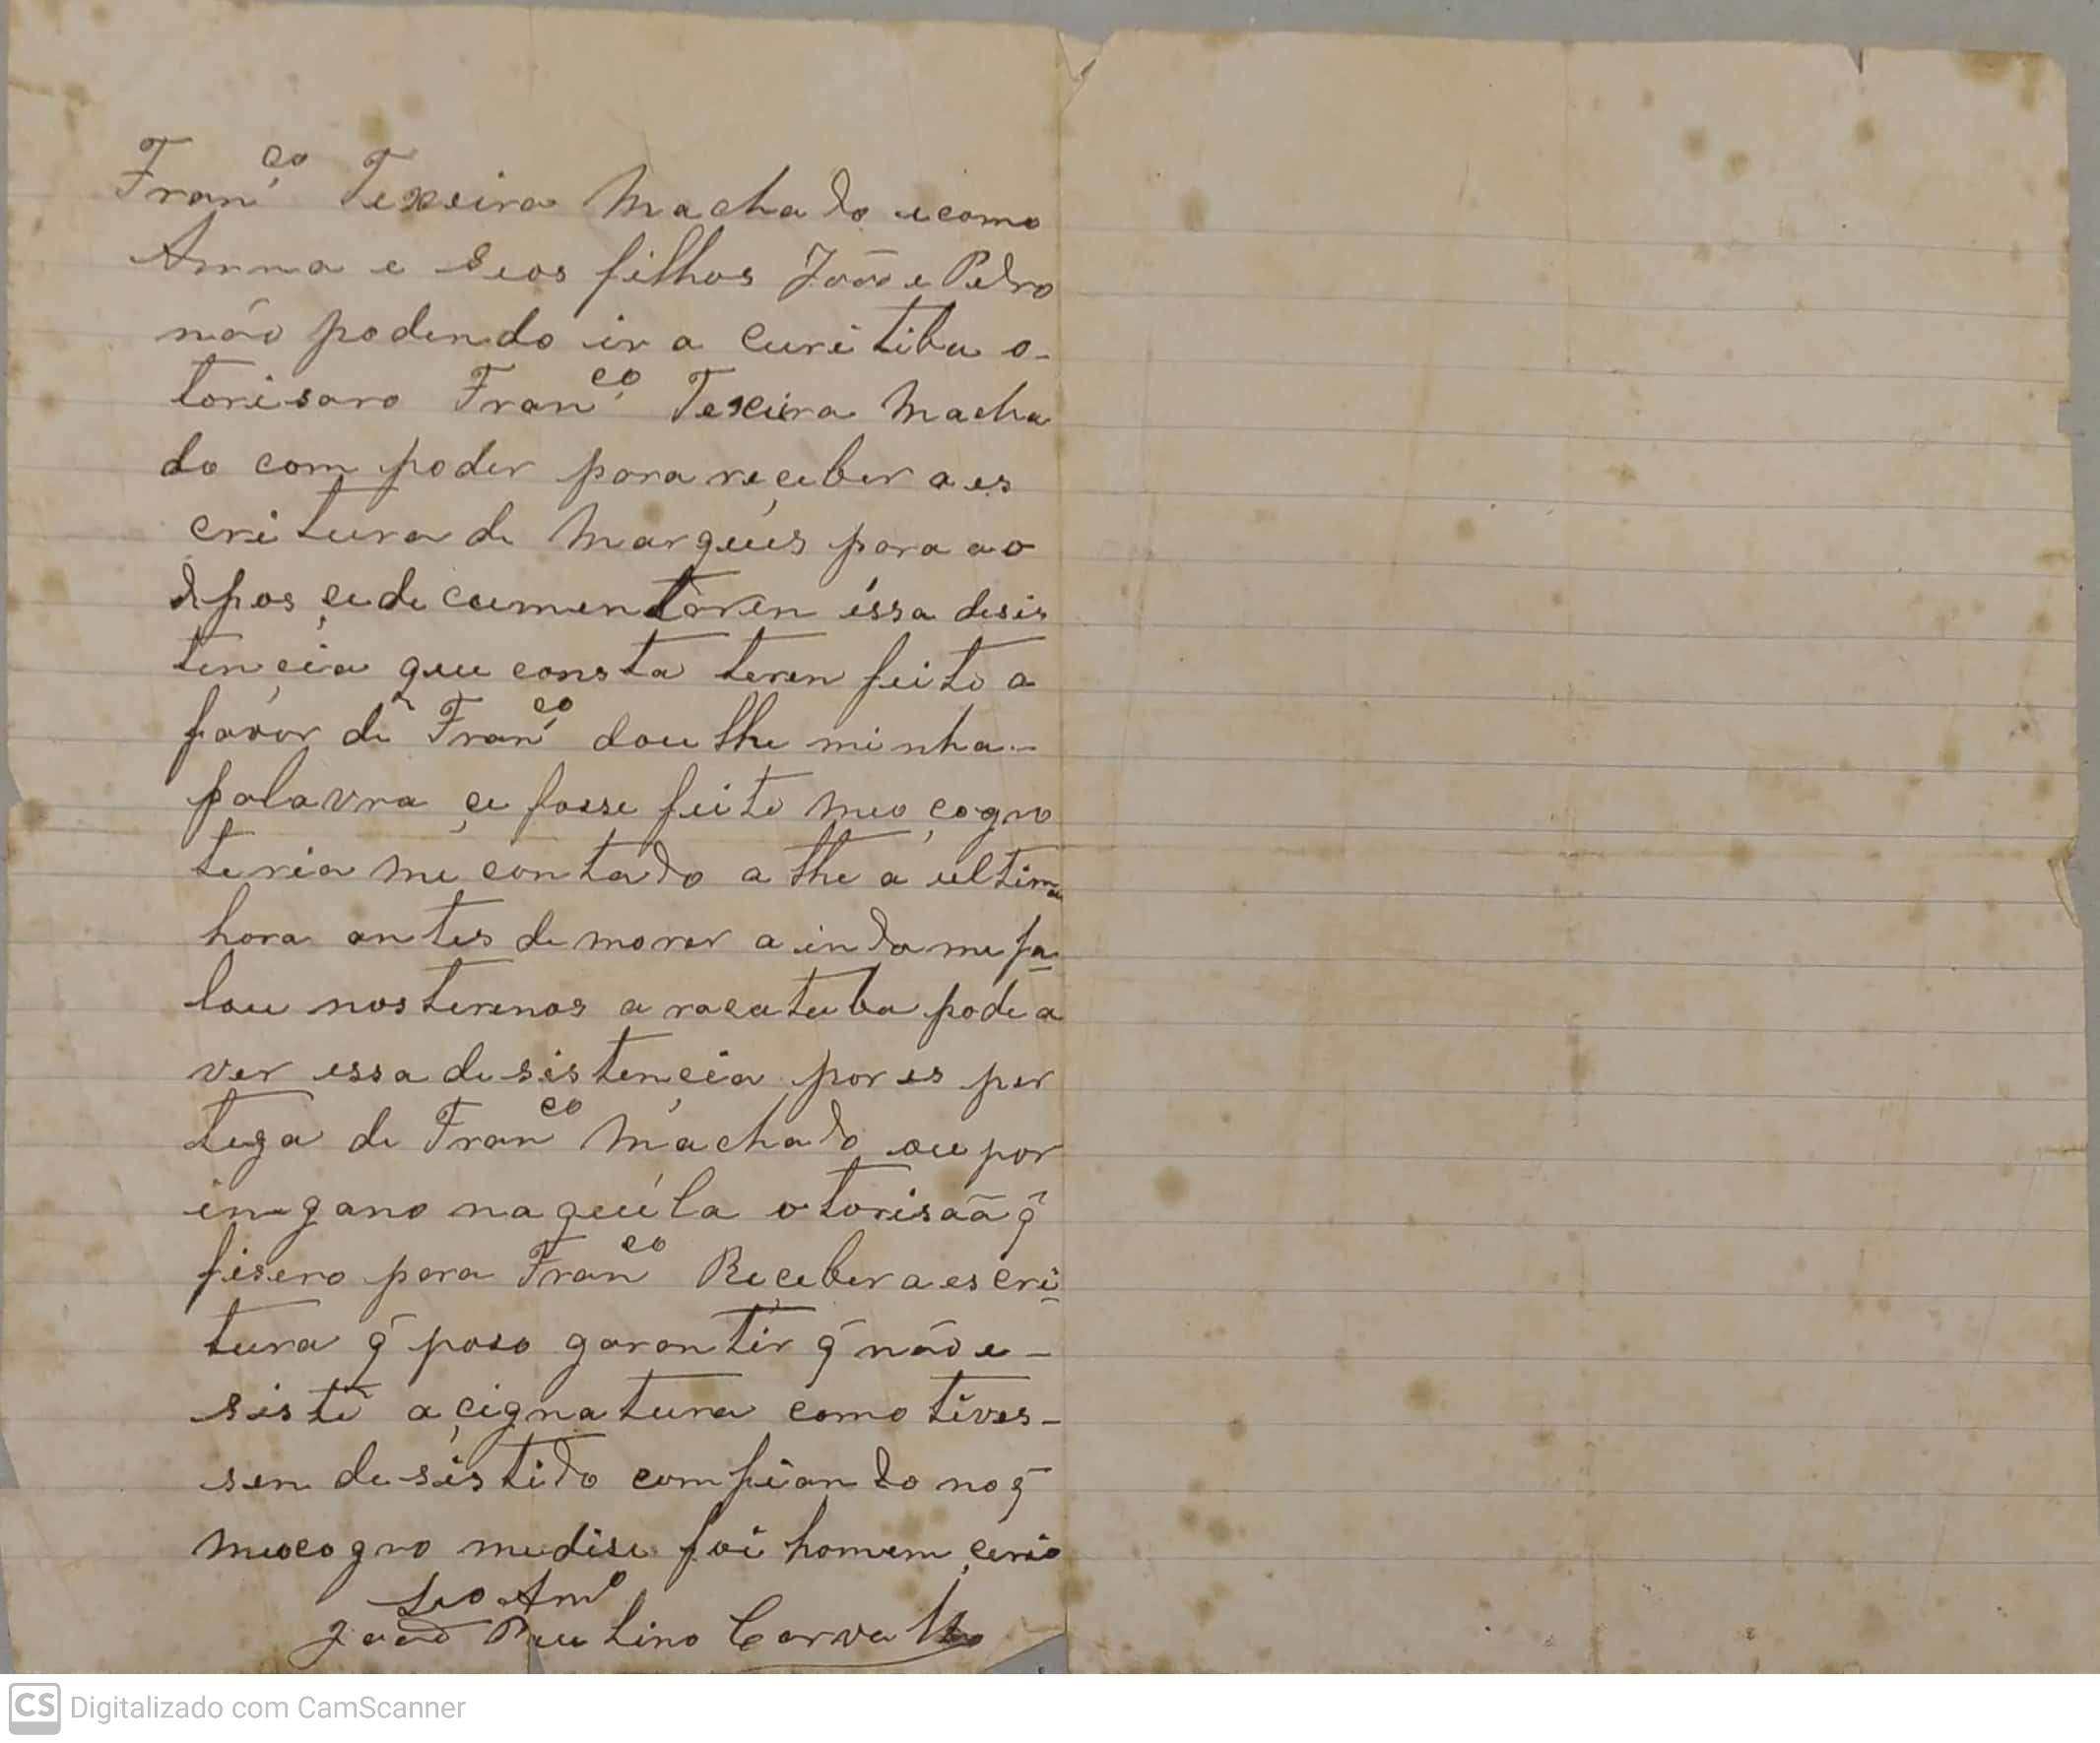 Fran^co Texeira Machado e como
Anna e Seos filhos João e Pedro
não podendo ir a Curitiba o-
torisaro Fran^co Texeira Macha
do com poder para reçeber a es
critura de Marques para ao
depos çe de cumentaren éssa desis
tençia que consta teren feito a
favor de Fran^co dou lhe minha -
palavra çe fosse feito meo çogro
teria me contado a the a ultima
hora antes de morer a inda me fa-
lou nos terenos a racatuba pode a
ver essa desistençia por es per
teza de Fran^co Machado ou por
ingano naquéla otorisaã q̃
fisero para Fran^co Reçeber a escri-
tura q̃ poso garantir q̃ não e -
siste a çignatura como tives -
sen desistido comfiando no q̃
meo cogro me dise foi homem çerio
Seo Am^o
João Paulino Carvalho
CS Digitalizado com CamScanner